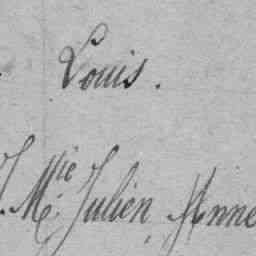 Louis.
J. Mie Julien, Anne